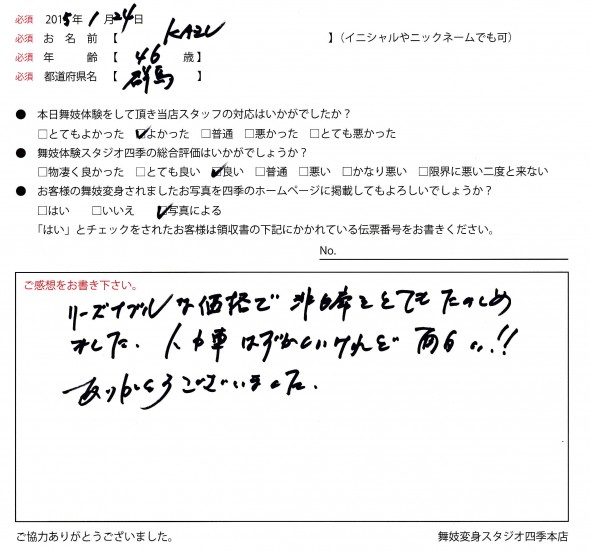 必須 2015年 1月24日
必須 お名前【 KAZU 】(イニシャルやニックネームでも可)
必須 年 齢【 46 歳】
必須 都道府県名【 群馬 】
● 本日舞妓体験をして頂き当店スタッフの対応はいかがでしたか?
□とてもよかった ☑よかった □普通 □悪かった □とても悪かった
● 舞妓体験スタジオ四季の総合評価はいかがでしょうか?
□物凄く良かった □とても良い ☑良い □普通 □悪い □かなり悪い □限界に悪い二度と来ない
● お客様の舞妓変身されましたお写真を四季のホームページに掲載してもよろしいでしょうか?
□はい □いいえ ☑写真による
「はい」とチェックをされたお客様は領収書の下記にかかれている伝票番号をお書きください。
No.
ご感想をお書き下さい。
リーズナブルな価格で とてもたのしめ
ました。人力車はずかしいけれど 面白い!!
ありがとうございました。
ご協力ありがとうございました。 舞妓変身スタジオ四季本店